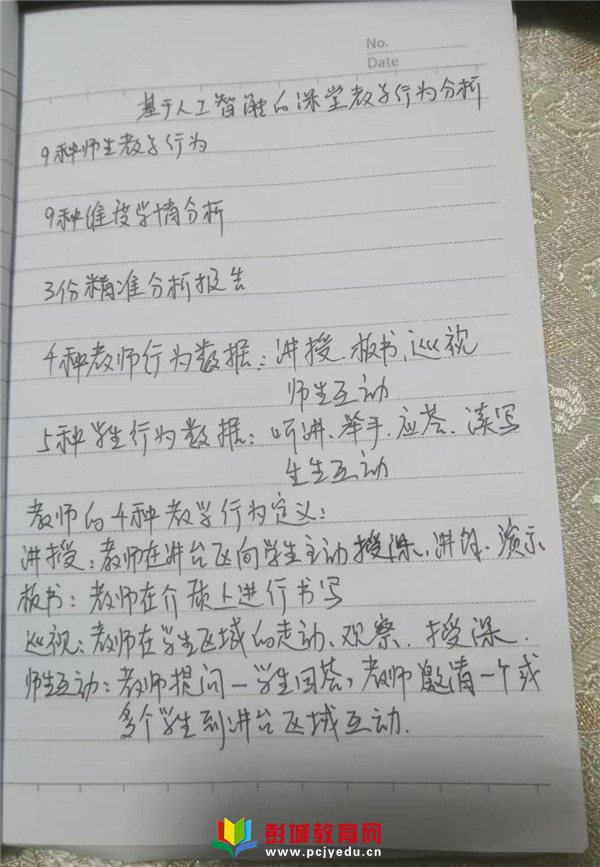 No.
Date
基于人工智能的课堂教学行为分析
9种师生教学行为
9种维度学情分析
3份精准分析报告
4种教师行为数据：讲授、板书、巡视
师生互动
5种学生行为数据：听讲、举手、应答、读写
生生互动
教师的4种教学行为定义：
讲授：教师在讲台区向学生主动授课、讲解、演示
板书：教师在介质上进行书写
巡视：教师在学生区域的走动、观察、授课.
师生互动：教师提问—学生回答，教师邀请一个或
多个学生到讲台区域互动.
彭城教育网
www.pcjyedu.cn